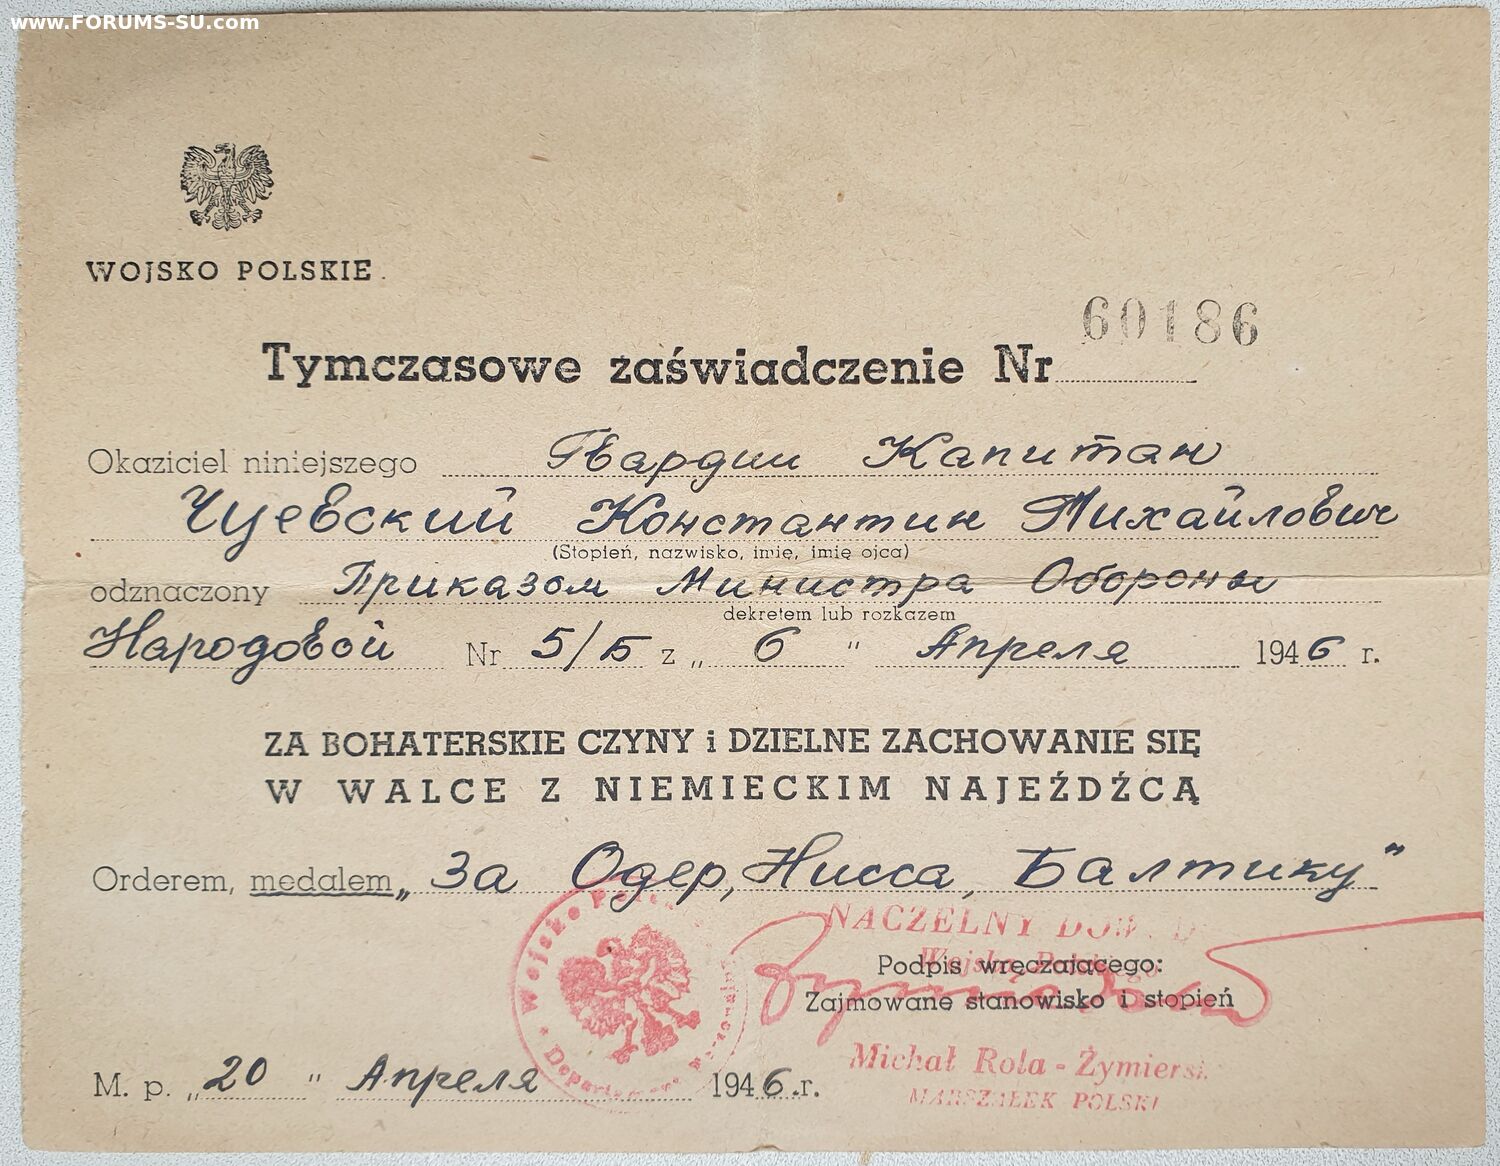 www.FORUMS-SU.com
WOJSKO POLSKIE.
60186
Tymczasowe zaświadczenie Nr
Okaziciel niniejszego Гвардии Капитан
Чуевский Константин Михайлович
(Stopień, nazwisko, imię, imię ojca)
odznaczony Приказом Министра Обороны
dekretem lub rozkazem
Народовой Nr 5/Б z „ 6 " Апреля 1946 r.
ZA BOHATERSKIE CZYNY i DZIELNE ZACHOWANIE SIĘ
W WALCE Z NIEMIECKIM NAJEŹDŹCĄ
Orderem, medalem „За Одер, Нисса, Балтику"
Wojsko
NACZELNY
Podpis wręczającego:
Zajmowane stanowisko i stopień
Michał Rola-Żymierski
MARSZAŁEK POLSKI
M. p. „20" Апреля 1946.r.